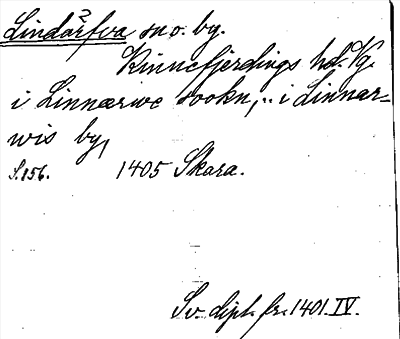 Lindärfva sno. by.
Kinnefjerdings hd. Vg.
i Linnærwe sookn, .. i Linnar-
wis by,
S. 156. 1405 Skara.
Sv. dipl. fr. 1401. IV.